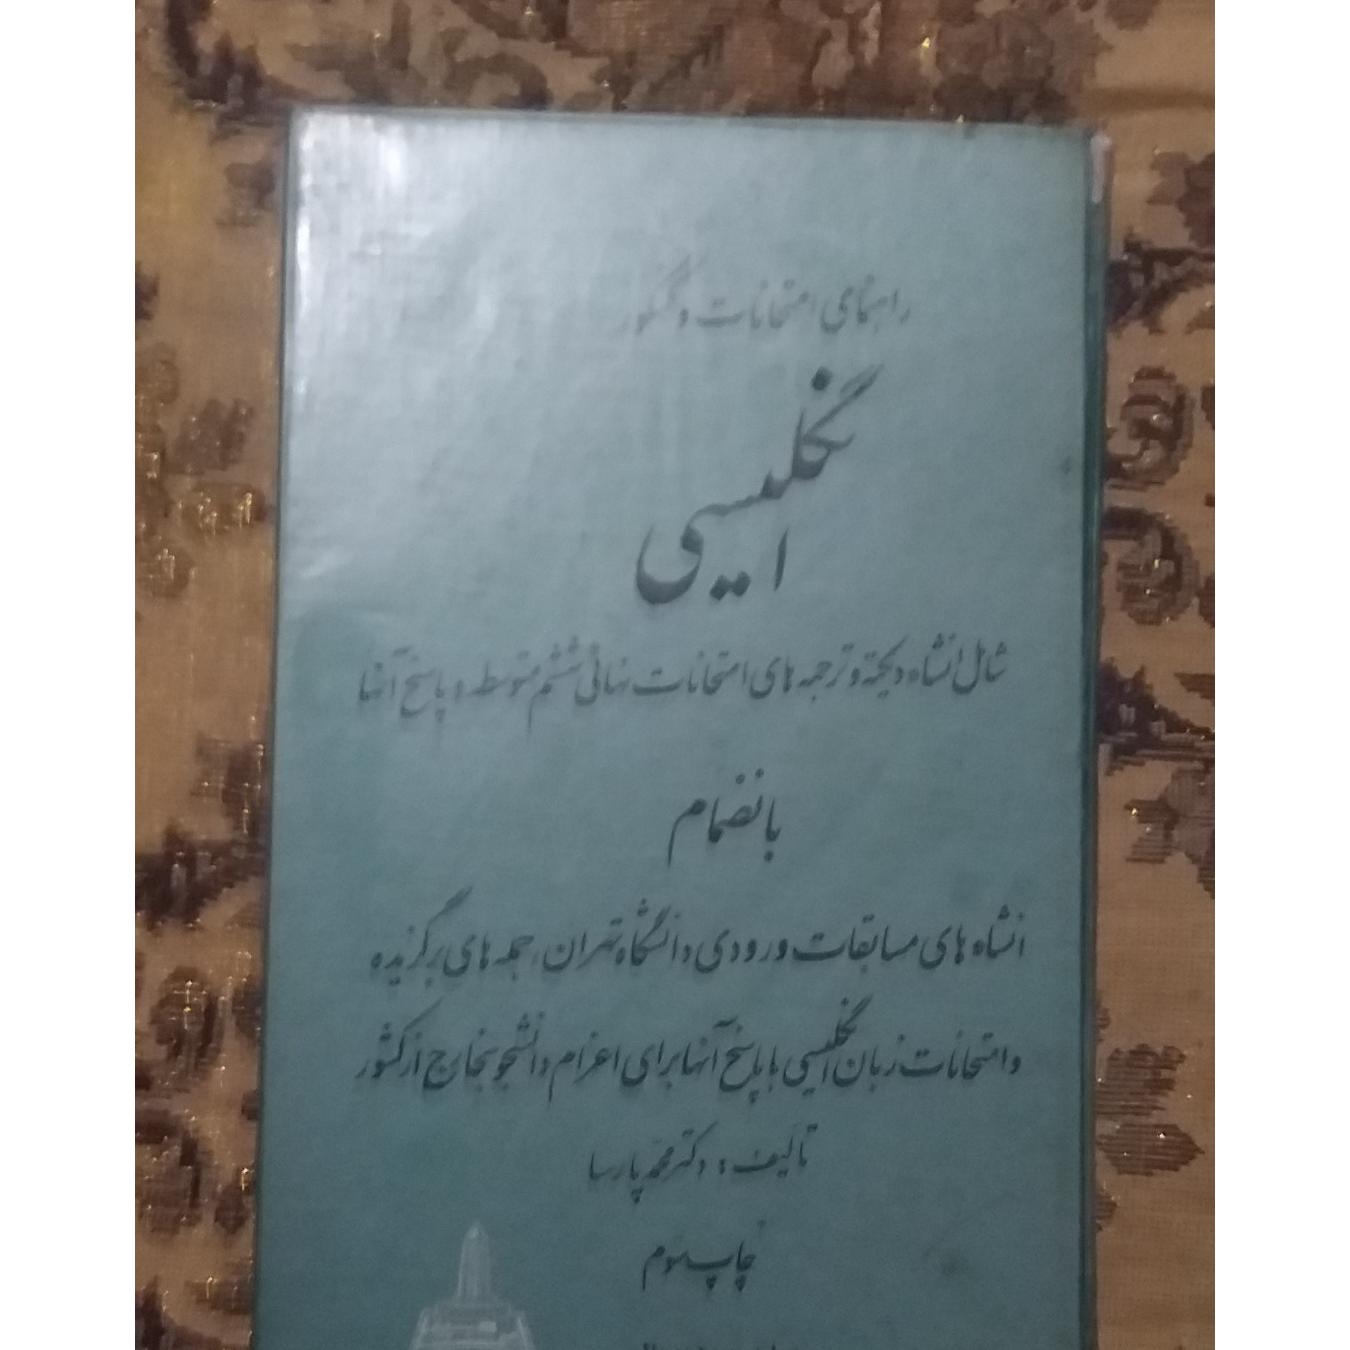 راهنمای امتحانات و کنکور
انگلیسی
شامل انشاء دیکته و ترجمه های امتحانات نهائی ششم متوسطه و پاسخ آنها
بانضمام
انشاه های مسابقات ورودی دانشگاه تهران، جمله های برگزیده
و امتحانات زبان انگلیسی با پاسخ آنها برای اعزام دانشجو بخارج از کشور
تألیف: دکتر محمد پارسا
چاپ سوم